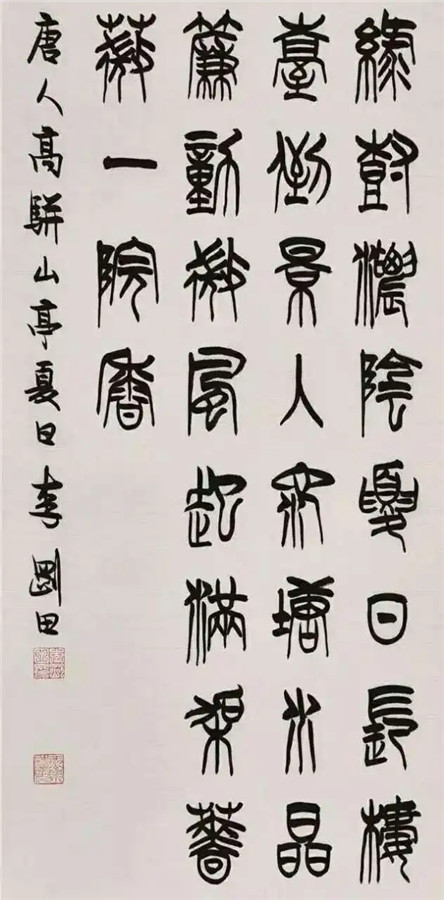 綠樹濃陰夏日長樓
臺倒景入池塘水晶
簾動微風起滿架薔
薇一院香
唐人高駢山亭夏日 李剛田